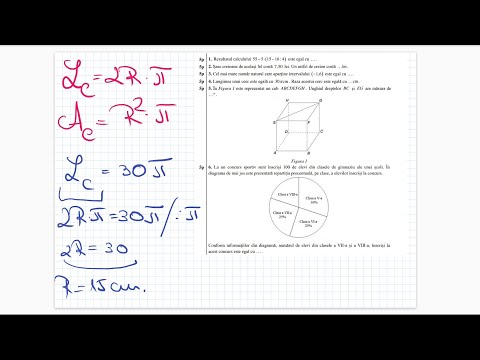 L_c = 2R·π
A_c = R²·π
L_c = 30π
2R·π = 30π /:π
2R = 30
R = 15 cm.
5p 1. Rezultatul calculului 55−5·(15−16:4) este egal cu ….
5p 2. Șase creioane de același fel costă 7,50 lei. Un astfel de creion costă … lei.
5p 3. Cel mai mare număr natural care aparține intervalului (−1,6] este egal cu ….
5p 4. Lungimea unui cerc este egală cu 30π cm. Raza acestui cerc este egală cu … cm.
5p 5. În Figura 1 este reprezentat un cub ABCDEFGH. Unghiul dreptelor BC și EG are măsura de
…°.
H G
E F
D C
A B
Figura 1
5p 6. La un concurs sportiv sunt înscriși 100 de elevi din clasele de gimnaziu ale unei școli. În
diagrama de mai jos este prezentată repartiția procentuală, pe clase, a elevilor înscriși la concurs.
Clasa a VIII-a
Clasa a V-a
30%
Clasa a VII-a
25%
Clasa a VI-a
20%
Conform informațiilor din diagramă, numărul de elevi din clasele a VII-a și a VIII-a, înscriși la
acest concurs este egal cu ….